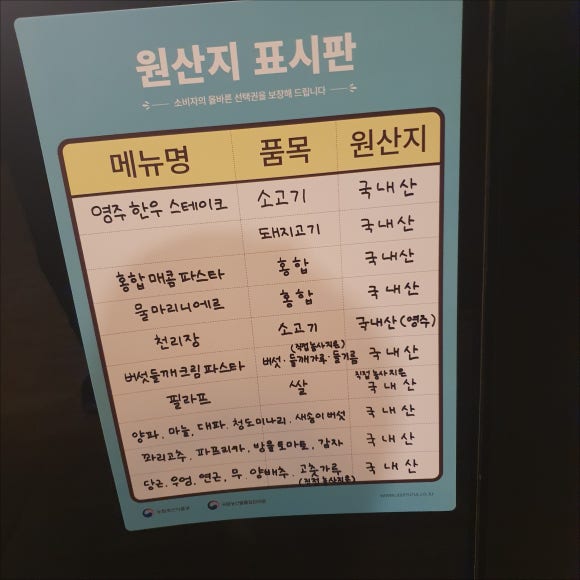 원산지 표시판
소비자의 올바른 선택권을 보장해 드립니다
메뉴명 품목 원산지
영주 한우 스테이크 소고기 국내산
돼지고기 국내산
홍합 매콤 파스타 홍합 국내산
물마리니에르 홍합 국내산
천리장 소고기 국내산 (영주)
버섯들깨크림파스타 버섯·들깨가루·들기름 (직접농사지음) 국내산
필라프 쌀 직접농사지음 국내산
양파, 마늘, 대파, 청도미나리, 새송이버섯 국내산
꽈리고추, 파프리카, 방울토마토, 감자 국내산
당근, 우엉, 연근, 무, 양배추, 고춧가루 (직접농사지음) 국내산
농림축산식품부 국립농산물품질관리원